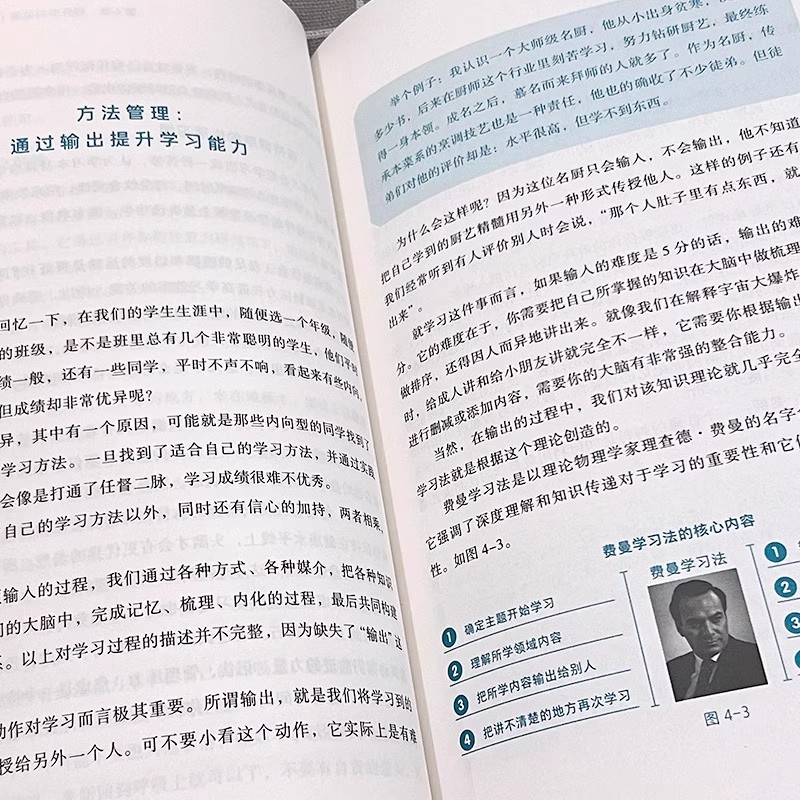 方法管理：
通过输出提升学习能力
回忆一下，在我们的学生生涯中，随便选一个年级，随便
的班级，是不是班里总有几个非常聪明的学生，他们平时
绩一般，还有一些同学，平时不声不响，看起来有些内向，
但成绩却非常优异呢？
异，其中有一个原因，可能就是那些内向型的同学找到了
学习方法。一旦找到了适合自己的学习方法，并通过实践
会像是打通了任督二脉，学习成绩很难不优秀。
自己的学习方法以外，同时还有信心的加持，两者相乘，
输入的过程，我们通过各种方式、各种媒介，把各种知识
的大脑中，完成记忆、梳理、内化的过程，最后共同构建
。以上对学习过程的描述并不完整，因为缺失了“输出”这
动作对学习而言极其重要。所谓输出，就是我们将学习到的
授给另外一个人。可不要小看这个动作，它实际上是有难
举个例子：我认识一个大师级名厨，他从小出身贫寒，
多少书，后来在厨师这个行业里刻苦学习，努力钻研厨艺，最终练
得一身本领。成名之后，慕名而来拜师的人就多了。作为名厨，传
承本菜系的烹调技艺也是一种责任，他也的确收了不少徒弟。但徒
弟们对他的评价却是：水平很高，但学不到东西。
为什么会这样呢？因为这位名厨只会输入，不会输出，他不知道
把自己学到的厨艺精髓用另外一种形式传授他人。这样的例子还有
我们经常听到有人评价别人时会说，“那个人肚子里有点东西，就
出来”。
就学习这件事而言，如果输入的难度是5分的话，输出的难
分。它的难度在于，你需要把自己所掌握的知识在大脑中做梳理
做排序，还得因人而异地讲出来。就像我们在解释宇宙大爆炸
时，给成人讲和给小朋友讲就完全不一样，它需要你根据输出
进行删减或添加内容，需要你的大脑有非常强的整合能力。
当然，在输出的过程中，我们对该知识理论就几乎完全
学习法就是根据这个理论创造的。
费曼学习法是以理论物理学家理查德·费曼的名字
它强调了深度理解和知识传递对于学习的重要性和它
性。如图4-3。
费曼学习法的核心内容
费曼学习法
1 确定主题开始学习
2 理解所学领域内容
3 把所学内容输出给别人
4 把讲不清楚的地方再次学习
1
2
3
图4-3